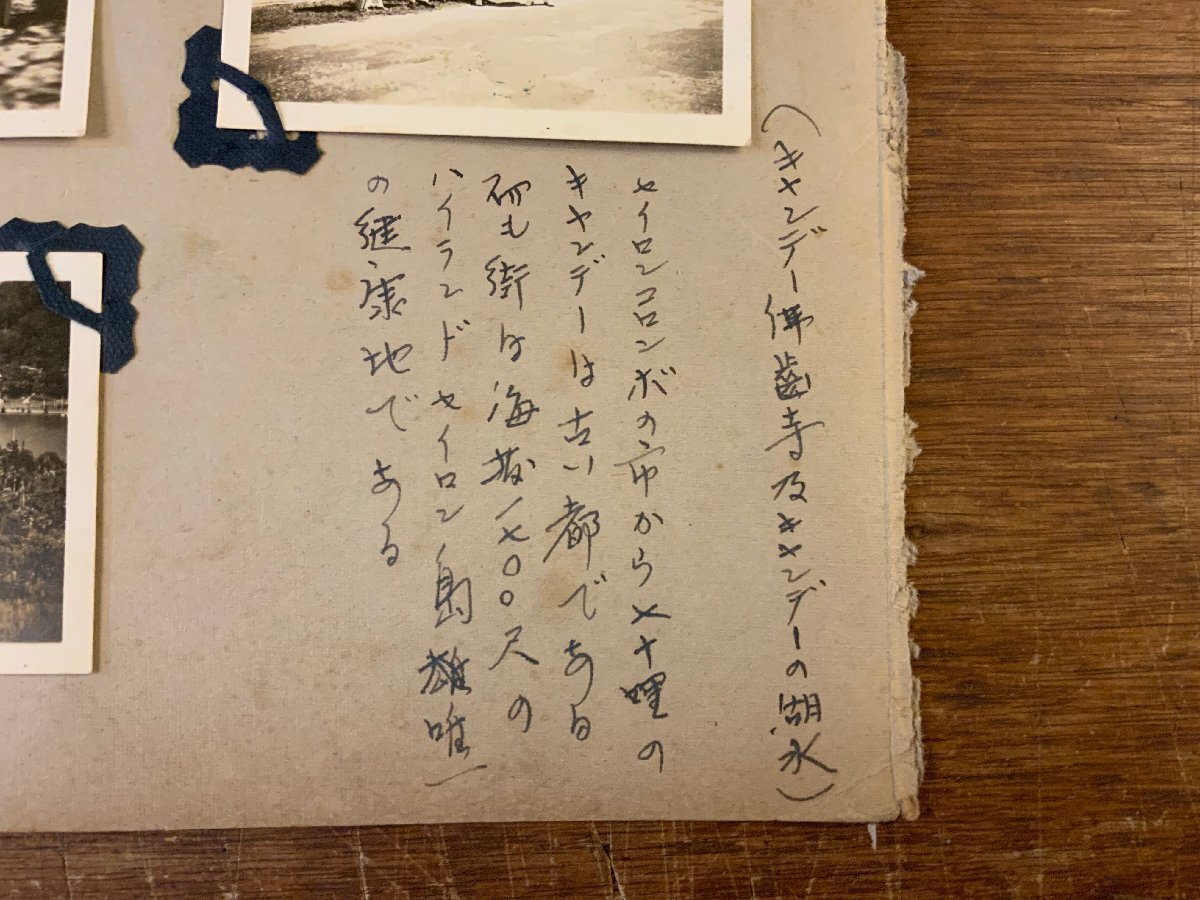 (キャンデー佛歯寺及キャンデーの湖水)
セイロンコロンボの市から七十哩の
キャンデーは古い都である
而も街は海抜一七〇〇尺の
ハイランドセイロン島唯一
の健康地である